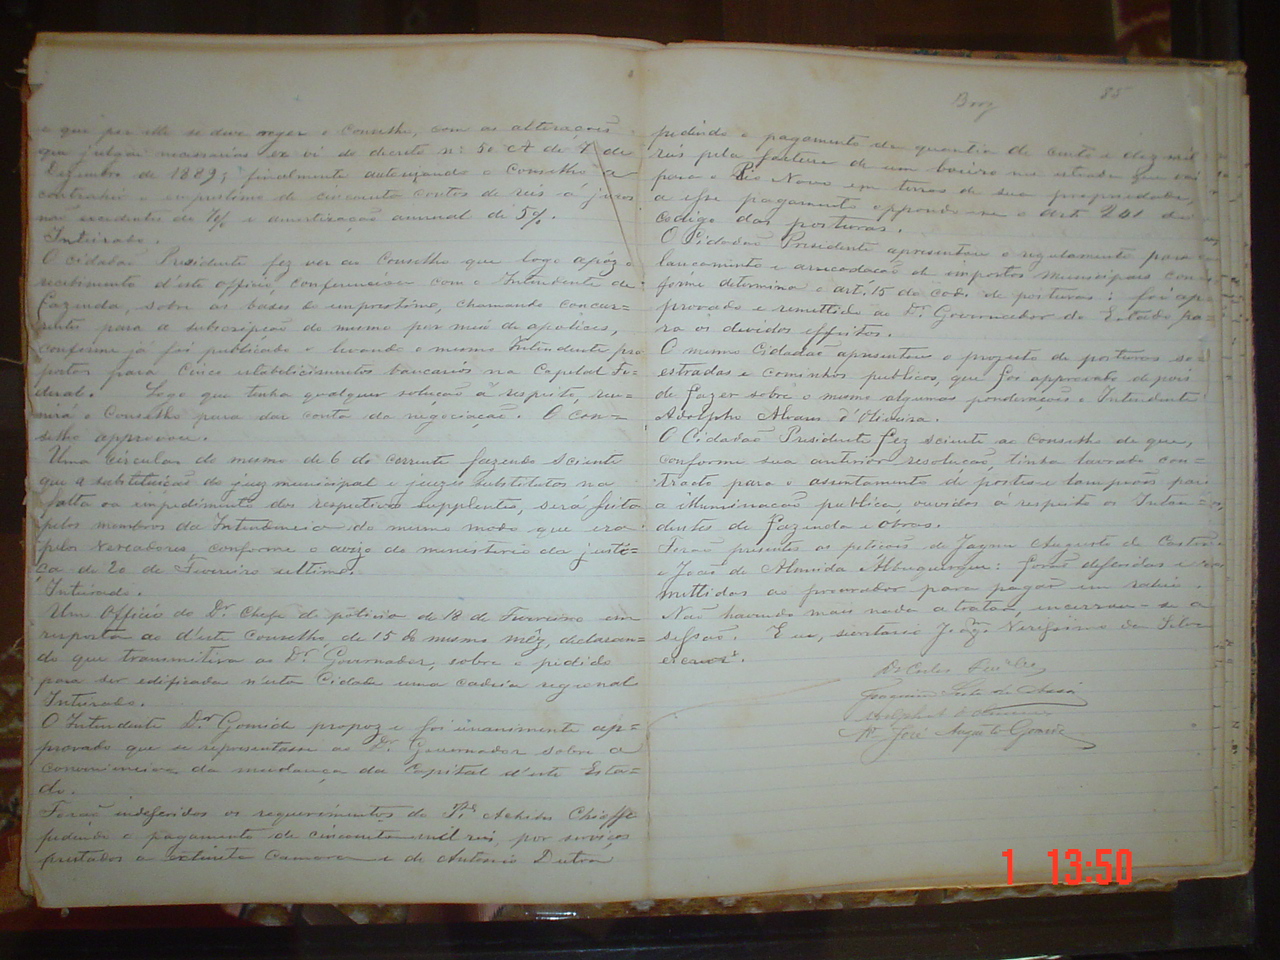 e que por elle se deve reger o Conselho, com as alterações
que julgar necessarias ex vi do decreto nº 50 A de 7 de
Dezembro de 1889; finalmente autorizando o Conselho a
contrahir o emprestimo de cincoenta contos de reis á juros
não excedentes de % e amortização annual de 5%.
Inteirado.
O cidadão Presidente fez ver ao Conselho que logo apóz o
recebimento d'este officio, conferenciou com o Intendente de
fazenda, sobre as bases do emprestimo, chamando concur-
rentes para a subscripção do mesmo por meio de apolices,
conforme já foi publicado e levando o mesmo Intendente pro
postas para cinco estabelecimentos bancarios na Capital Fe=
deral. Logo que tenha qualquer solução á respeito, reu=
nirá o Conselho para dar conta da negociação. O Con=
selho approvou.
Uma circular do mesmo de 6 do corrente fazendo sciente
que a substituição do juiz municipal e juizes substitutos na
falta ou impedimento dos respectivos supplentes, será feita
pelos membros da Intendencia do mesmo modo que era
pelos Vereadores, conforme o avizo do ministerio da justi=
ça de 20 de Fevereiro ultimo.
Inteirado.
Um Officio do Dr. Chefe de policia de 18 de Fevereiro em
resposta ao d'este Conselho de 15 do mesmo mêz, declaran=
do que transmittira ao Dr. Governador, sobre o pedido
para ser edificada n'esta Cidade uma cadeia regional
Inteirado.
O Intendente Dr. Gomide propoz e foi unanimente ap=
provado que se representasse ao Dr. Governador sobre a
conveniencia da mudança da Capital d'este Esta=
do.
Forão indeferidos os requerimentos do Pe. Achilles
pedindo o pagamento de cincoenta mil reis, por serviços
prestados a extincta Camara e de Antonio Dutra
85
pedindo o pagamento da quantia de cento e dez mil
reis pela factura de um boeiro na estrada que vai
para o Rio Novo em terras de sua propriedade,
a esse pagamento oppondo-se o art. 241 do
codigo das posturas.
O Cidadão Presidente apresentou o regulamento para o
lançamento e arrecadação de impostos municipaes con
forme determina o art. 15 do cod. de posturas: foi ap
provado e remettido ao Dr. Governador do Estado pa=
ra os devidos effeitos.
O mesmo Cidadão apresentou o projecto de posturas so=
estradas e caminhos publicos, que foi approvado depois
de fazer sobre o mesmo algumas ponderações o Intendente
Adolpho Alvares d'Oliveira.
O Cidadão Presidente fez sciente ao Conselho de que,
conforme sua anterior resolução, tinha lavrado con=
tracto para o assentamento de postes e lampeões para
a illuminação publica, ouvidos á respeito os Inten=
dentes de fazenda e obras.
Forão presentes as petições de Augusto de Castro
e João de Almeida Albuquerque: forão deferidas e re
mettidas ao procurador para pagar em rateio.
Não havendo mais nada a tratar, encerrou-se a
sessão. E eu, secretario João Verissimo da Silva
escrevi.
Dr Carlos
Joaquim
Adolpho
José Augusto Gomide
1 13:50